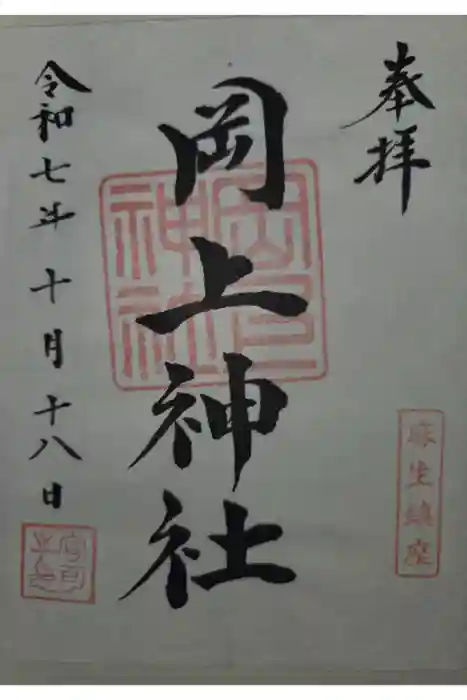 奉拝
麻生鎮座
岡上神社
岡上神社
令和七年十月十八日